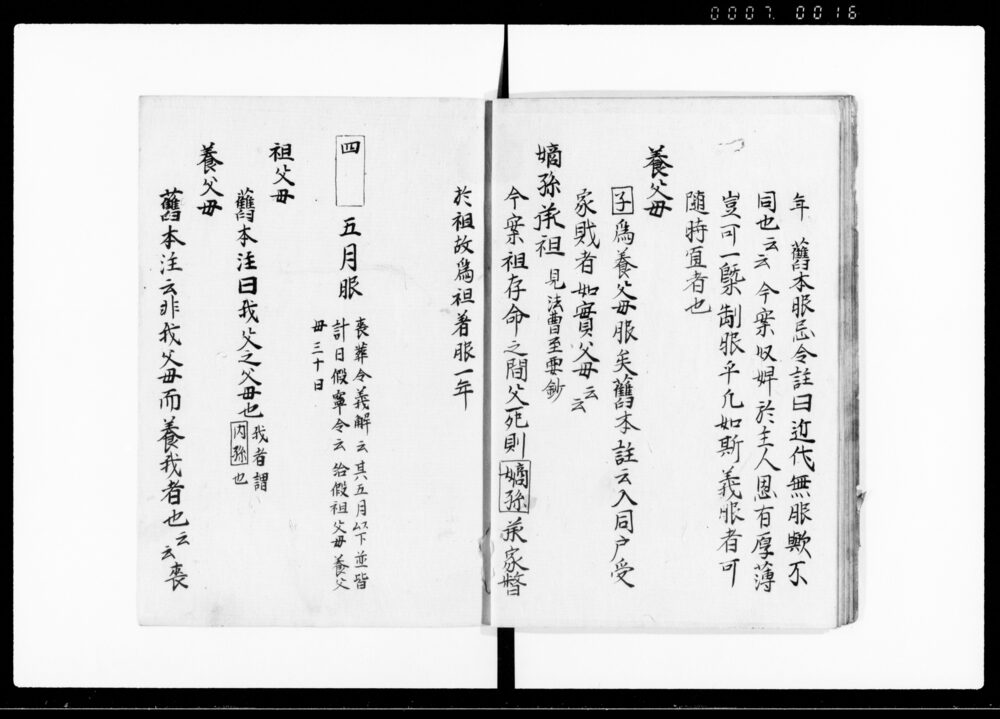 0007 0016
年 舊本服忌令註曰近代無服歟不
同也云云今案奴婢於主人恩有厚薄
豈可一槩制服乎凡如斯義服者可
隨時宜者也
養父母
子為養父母服矣舊本註云入同戶受
家賊者如實父母云云
嫡孫承祖 見法曹至要鈔
今案祖存命之間父死則嫡孫承家督
於祖故為祖著服一年
四 五月服 喪葬令義解云其五月以下並皆
計日假寧令云給假祖父母養父
母三十日
祖父母
舊本注曰我父之父母也我者謂
内孫也
養父母
舊本注云非我父母而養我者也云云喪